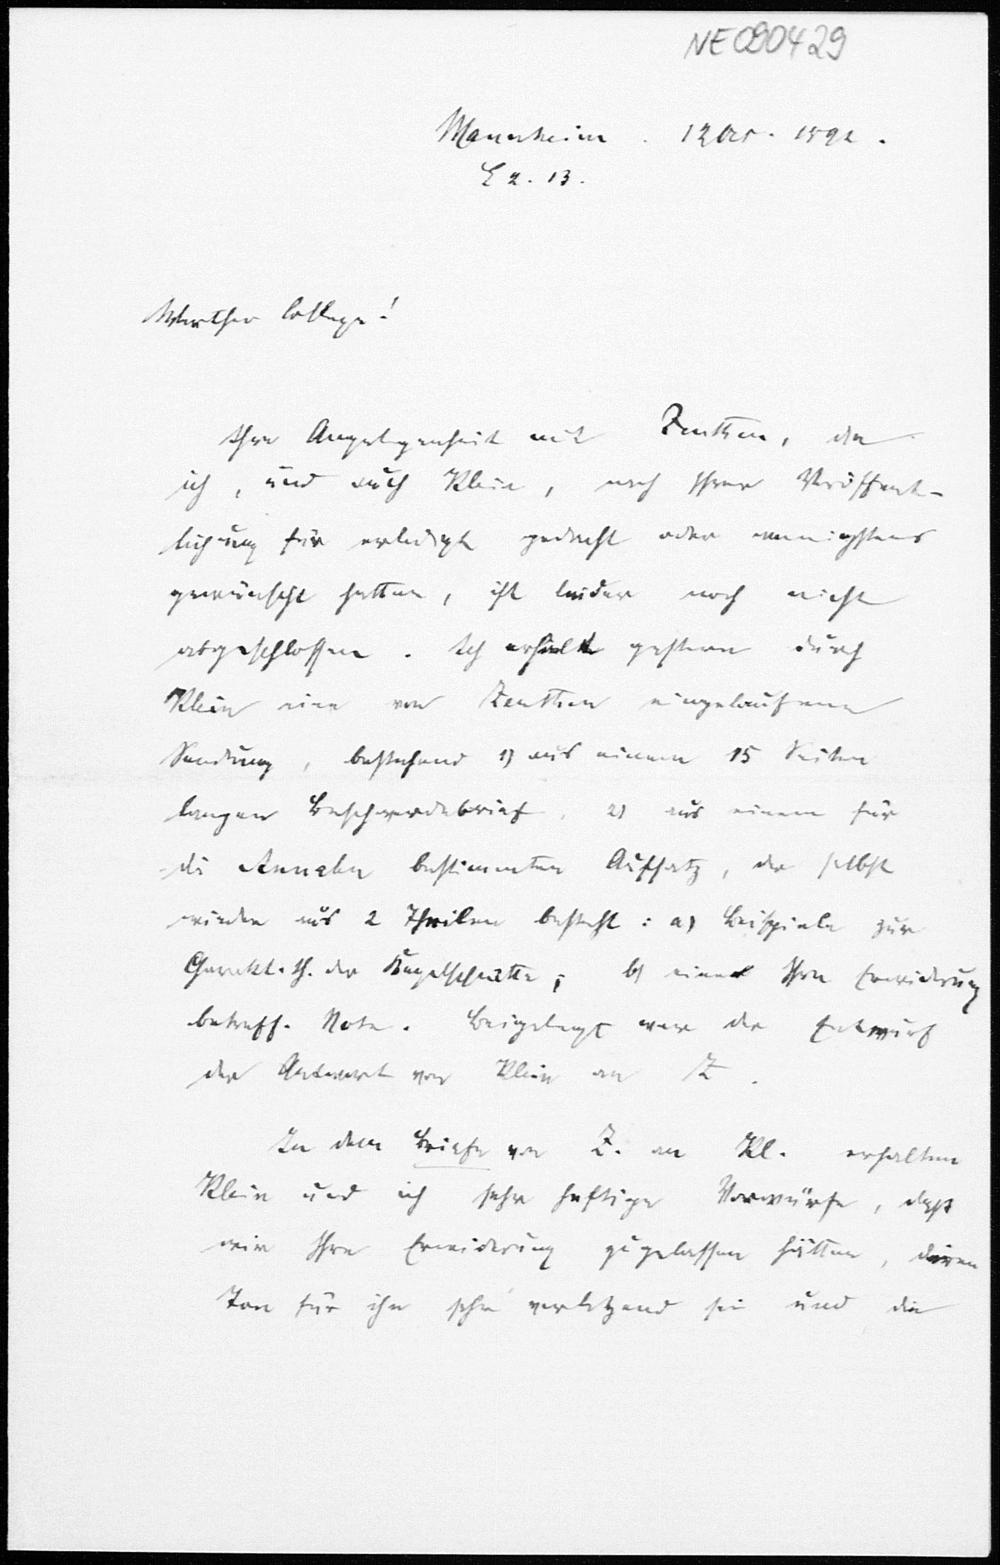 NE090429
Mannheim. 12 Oct. 1892.
L 2. 13.
Werther College!
Ihre Angelegenheit mit Zeuthen, die
ich, und auch Klein, nach Ihrer Veröffent-
lichung für erledigt gedacht oder wenigstens
gewünscht hatten, ist leider noch nicht
abgeschlossen. Ich erhielt gestern durch
Klein eine von Zeuthen eingelaufene
Sendung, bestehend 1) aus einem 15 Seiten
langen Beschwerdebrief, 2) aus einem für
die Annalen bestimmten Aufsatz, der selbst
wieder aus 2 Theilen besteht: a) Beispiele zur
Charakt. th. der Kegelschnitte; b) einer Ihre Erwiderung
betreff. Note. Beigelegt war der Entwurf
der Antwort von Klein an Z.
In dem Briefe von Z. an Kl. erhalten
Klein und ich sehr heftige Vorwürfe, daß
wir Ihre Erwiderung zugelassen hätten, deren
Ton für ihn sehr verletzend sei und die